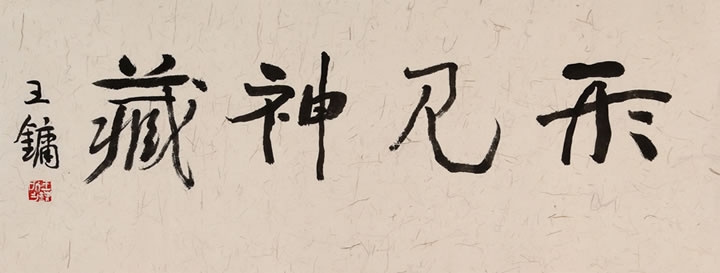 形见神藏
王鏞